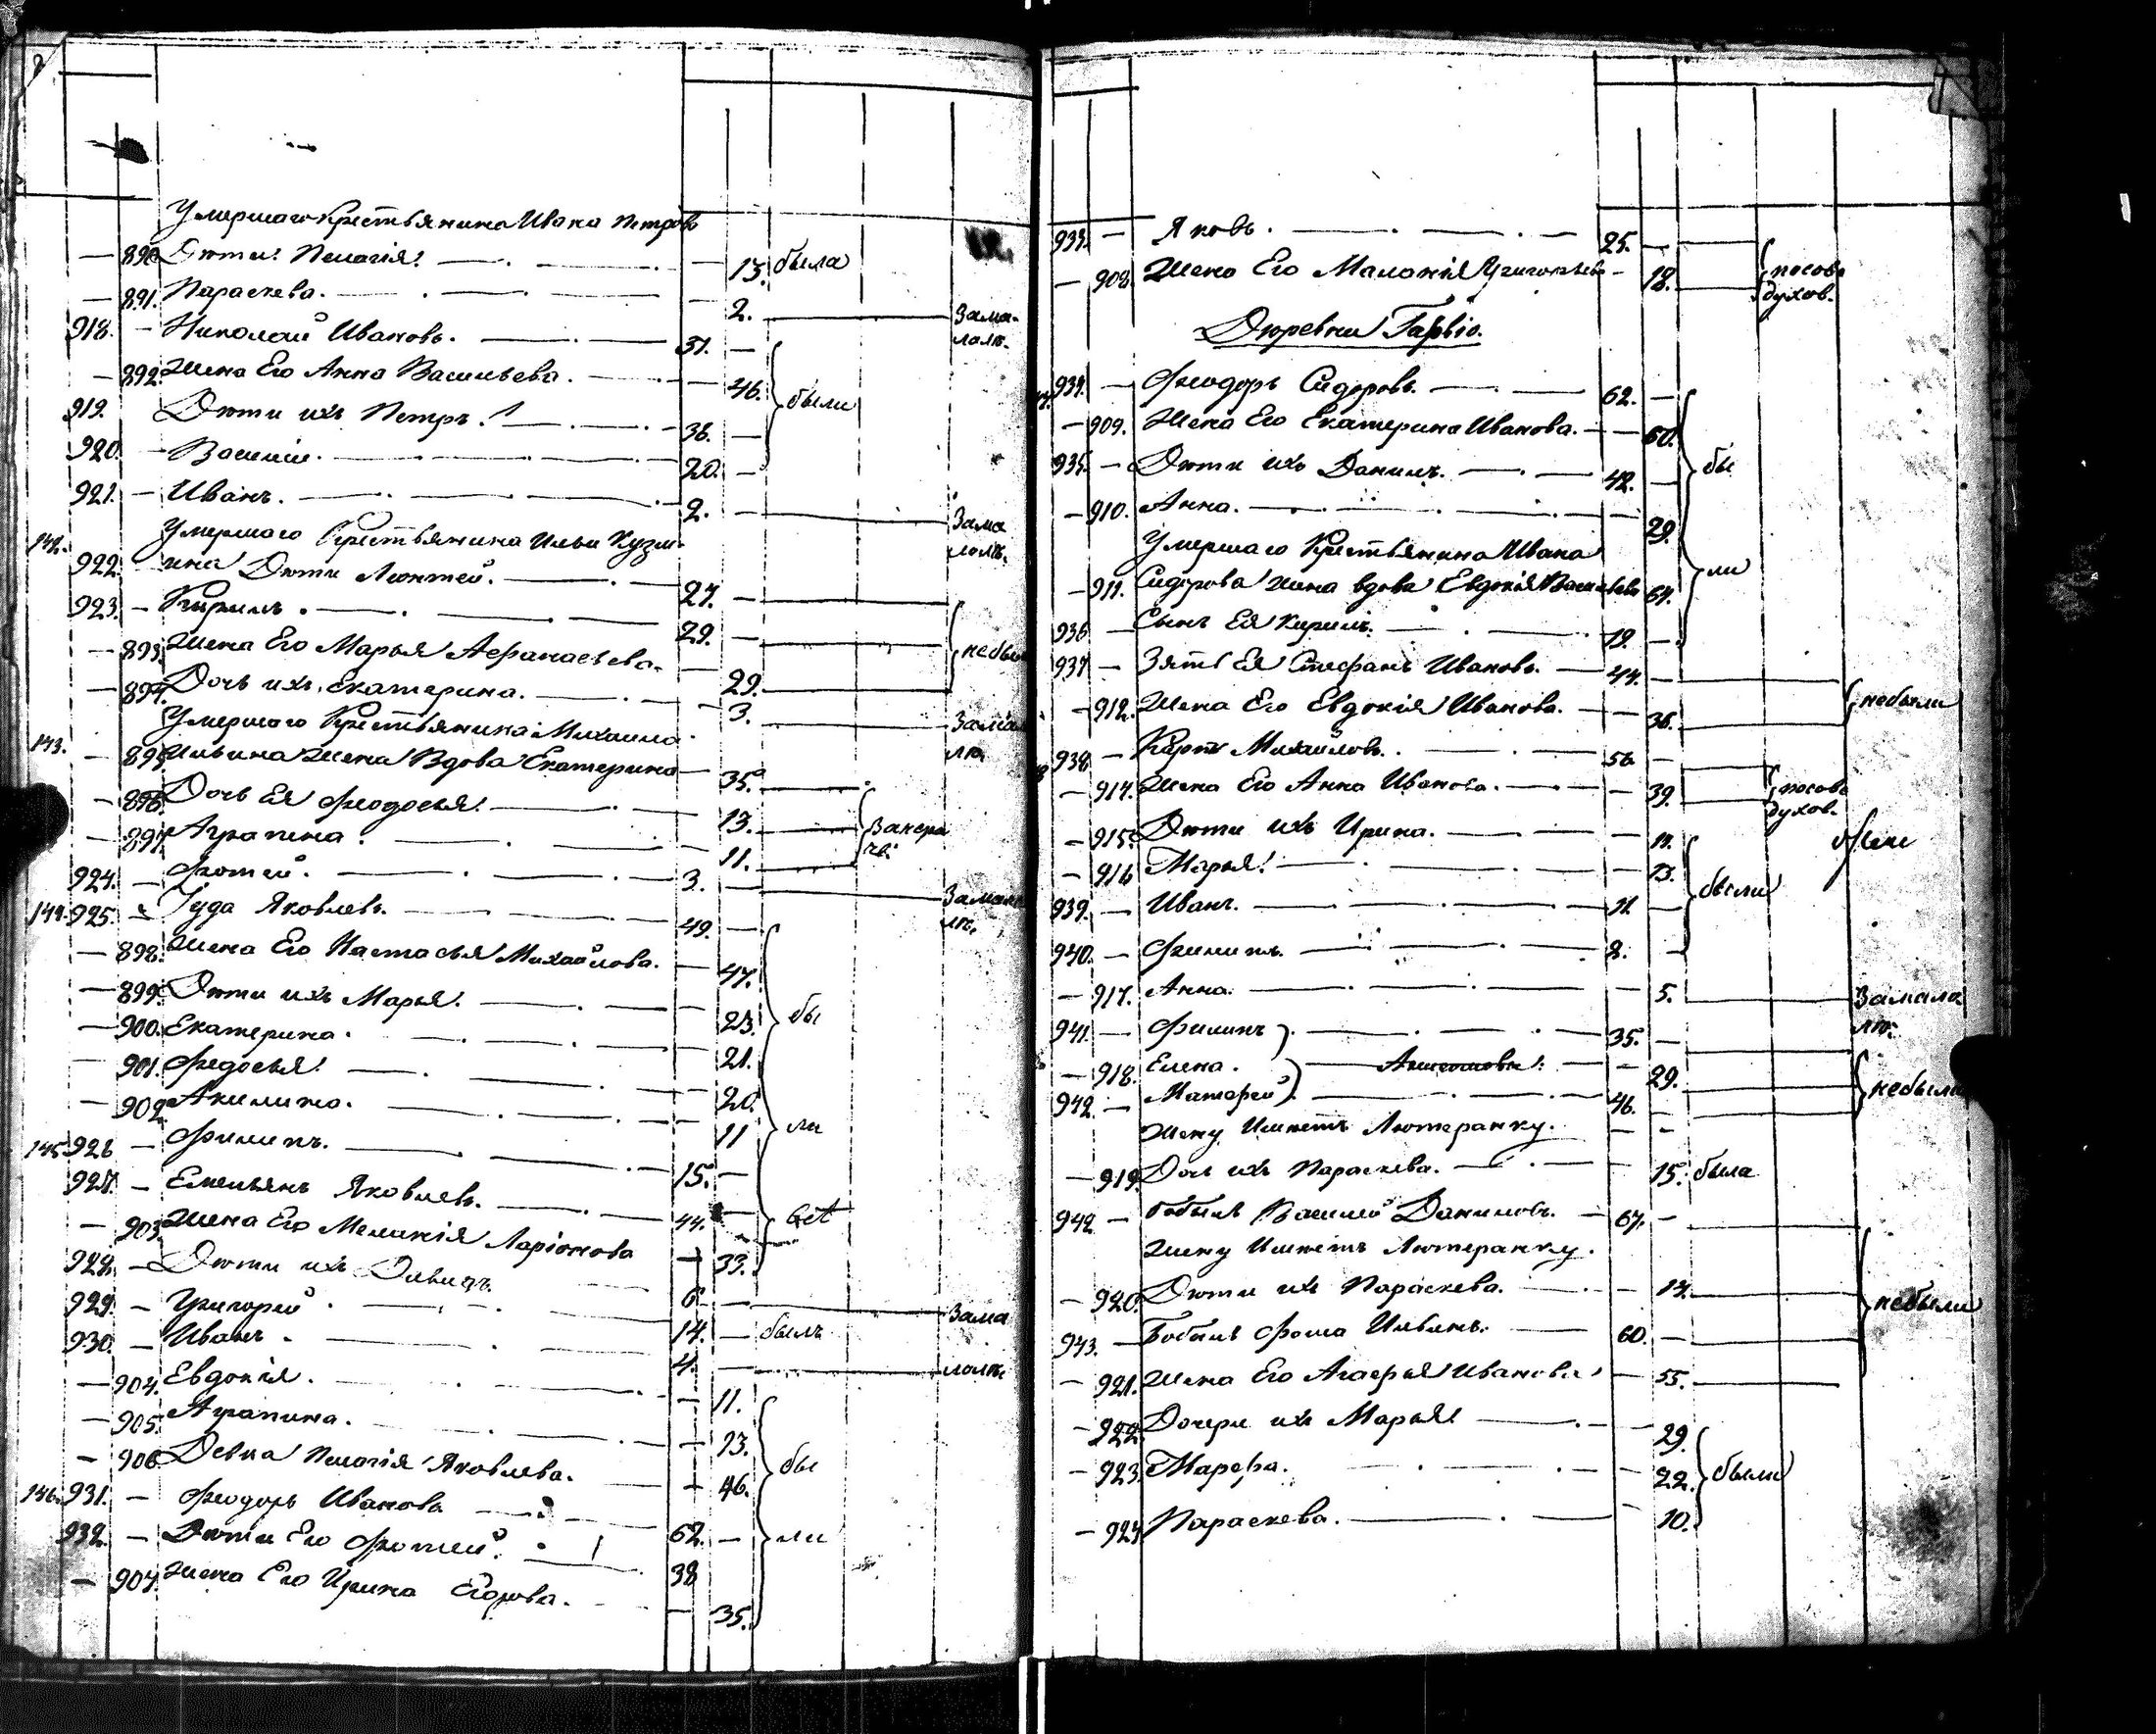 Умершаго Крестьянина Ивана Петрова
— 890. Дѣти: Пелагія. — 13. была
— 891. Параскева. — 2. Зама-
лолѣт.
918. — Николай Ивановъ. 37. —
— 892. Жена Его Анна Васильева. — 46. были
919. Дѣти ихъ Петръ. 38. —
920. — Василій. 20. —
921. — Иванъ. 2. — Зама
лолѣт.
142. Умершаго Крестьянина Ильи Кузм-
922. ина Дѣти Леонтей. 27. —
923. — Кирилъ. 29. — небыли
— 893. Жена Его Марья Афанасьева. — 29.
— 894. Дочь ихъ Екатерина. — 3. Замало
лѣт.
Умершаго Крестьянина Михаила
143. — 895. Ильина Жена Вдова Екатерина — 35.
— 896. Дочь Ея Феодосья. — 13.
— 897. Агрипина. — 11.
924. — Фотей. 3. — Замало
лѣт.
144. 925. — Іуда Яковлевъ. 49. —
— 898. Жена Его Настасья Михайлова. — 47.
— 899. Дѣти ихъ Марья. — 23. бы
— 900. Екатерина. — 21.
— 901. Федосья. — 20.
— 902. Акилина. — 11 ли
145. 926 — Филипъ. 15. —
927. — Емельянъ Яковлевъ. 44. —
— 903. Жена Его Меланія Ларіонова — 33.
928. — Дѣти ихъ Давидъ. 6. — Зама
929. — Григорей. 14. — былъ
930. — Иванъ. 4. — лолѣт
— 904. Евдокія. — 11.
— 905. Агрипина. — 13.
— 906. Девка Пелагія Яковлева. — 46. бы
146. 931. — Феодоръ Ивановъ 62. —
932. — Дѣти Его Фотей. 38 ли
— 907. Жена Его Ирина Егорова. — 35.
933. — Яковъ. 25. —
— 908. Жена Его Маланія Григорьева — 18. посов.
духов.
Деревни Гарвіо.
934. — Феодоръ Сидоровъ. 62. —
— 909. Жена Его Екатерина Иванова. — 60.
935. — Дѣти ихъ Данилъ. 42. — бы
— 910. Анна. — 29.
Умершаго Крестьянина Ивана
— 911. Сидорова жена вдова Евдокія Васильева 64. ли
936 — Сынъ Ея Кирилъ. 19. —
937 — Зять Ея Стефанъ Ивановъ. 44. —
— 912. Жена Его Евдокія Иванова. — 36. небыли
938 — Карпъ Михайловъ. 56 —
— 914. Жена Его Анна Иванова. — 39. посов
духов.
— 915. Дѣти ихъ Ирина. —
— 916 Марья. — 13.
939. — Иванъ. 11 — были
940. — Филипъ. 8. —
— 917. Анна. — 5. Замало
лѣт.
941. — Филипъ 35. —
— 918. Елена. — 29.
942. — Матфей 46. — небыли
Жену Имѣетъ Лютеранку. — —
— 919. Дочь ихъ Параскева. — 15. была
942 — Бобыль Василей Даниловъ. 67. —
Жену Имѣетъ Лютеранку.
— 920. Дѣти ихъ Параскева. — 14.
943. — Бобыль Фома Ильинъ. 60. — небыли
— 921. Жена Его Агафья Иванова — 55.
— 922. Дочери ихъ Марья — 29.
— 923. Марфа. — 22. были
— 924 Параскева. — 10.